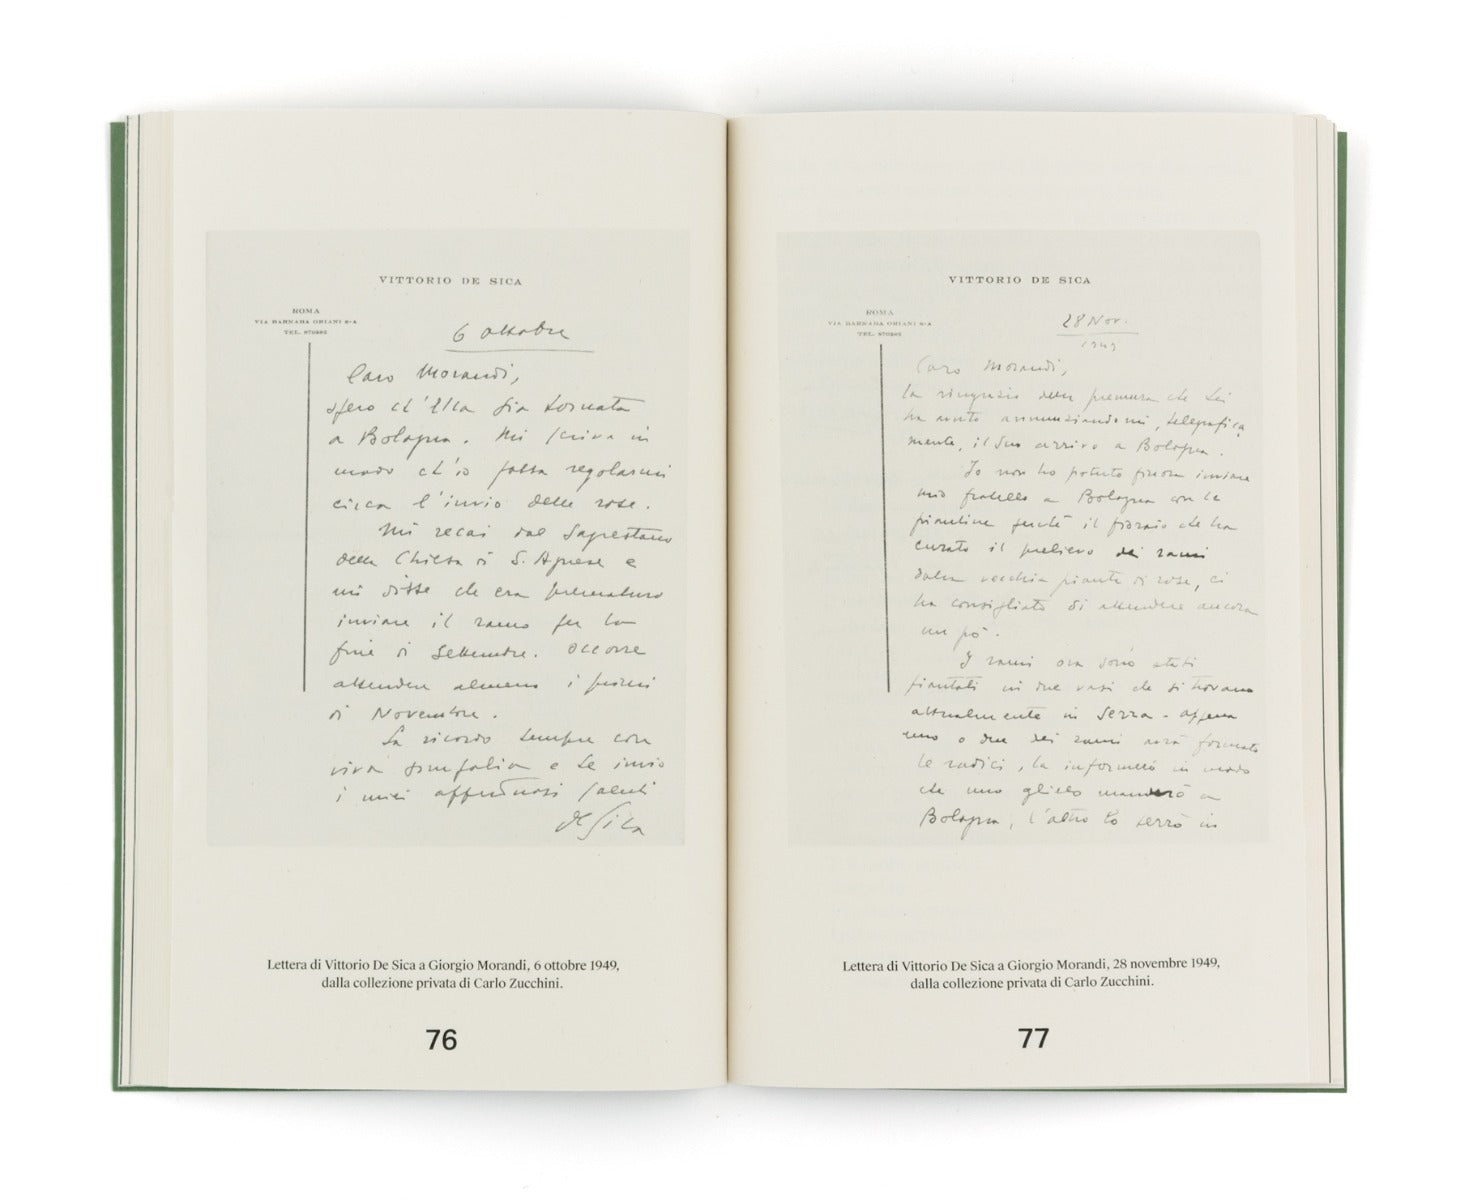 VITTORIO DE SICA
ROMA
VIA BARNABA ORIANI
TEL. 870982
6 ottobre
Caro Morandi,
spero ch'Ella sia tornata
a Bologna. Mi scriva in
modo ch'io possa regolarmi
circa l'invio delle rose.
Mi recai dal Sagrestano
della Chiesa di S. Agnese e
mi disse che era prematuro
inviare il ramo per la
fine di Settembre. Occorre
attendere almeno i primi
di Novembre.
La ricordo sempre con
viva simpatia e Le invio
i miei affettuosi saluti
De Sica
Lettera di Vittorio De Sica a Giorgio Morandi, 6 ottobre 1949,
dalla collezione privata di Carlo Zucchini.
76
VITTORIO DE SICA
ROMA
VIA BARNABA ORIANI
TEL. 870982
28 Nov.
1949
Caro Morandi,
la ringrazio della premura che Lei
ha avuto annunziandomi, telegrafica
mente, il Suo arrivo a Bologna.
Io non ho potuto finora inviare
mio fratello a Bologna con le
piantine perchè il fioraio che ha
curato il prelievo dei rami
dalla vecchia pianta di rose, ci
ha consigliato di attendere ancora
un pò.
I rami ora sono stati
piantati in due vasi che si trovano
attualmente in Serra - appena
uno o due dei rami avrà formato
le radici, la informerò in modo
che uno glielo manderò a
Bologna, l'altro lo terrò in
Lettera di Vittorio De Sica a Giorgio Morandi, 28 novembre 1949,
dalla collezione privata di Carlo Zucchini.
77